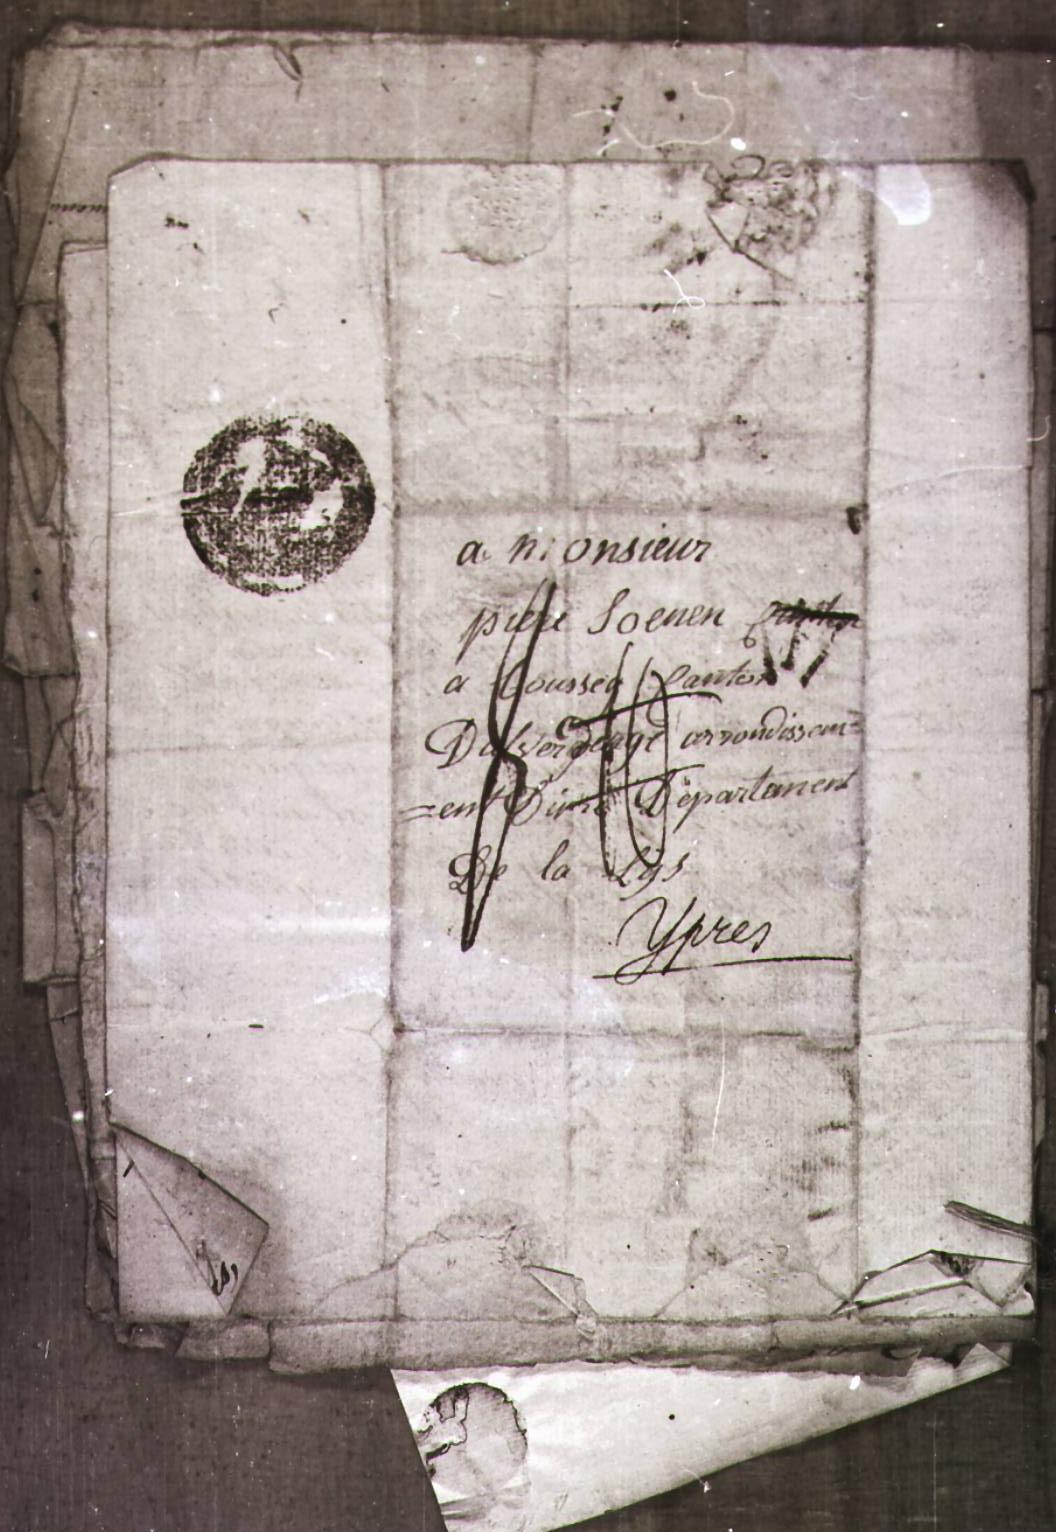 a monsieur
piere Soenen
a Cousseč Canton
Dalverdenge arrondissem=
=ent Dipre Département
De la Lijs
Ypres